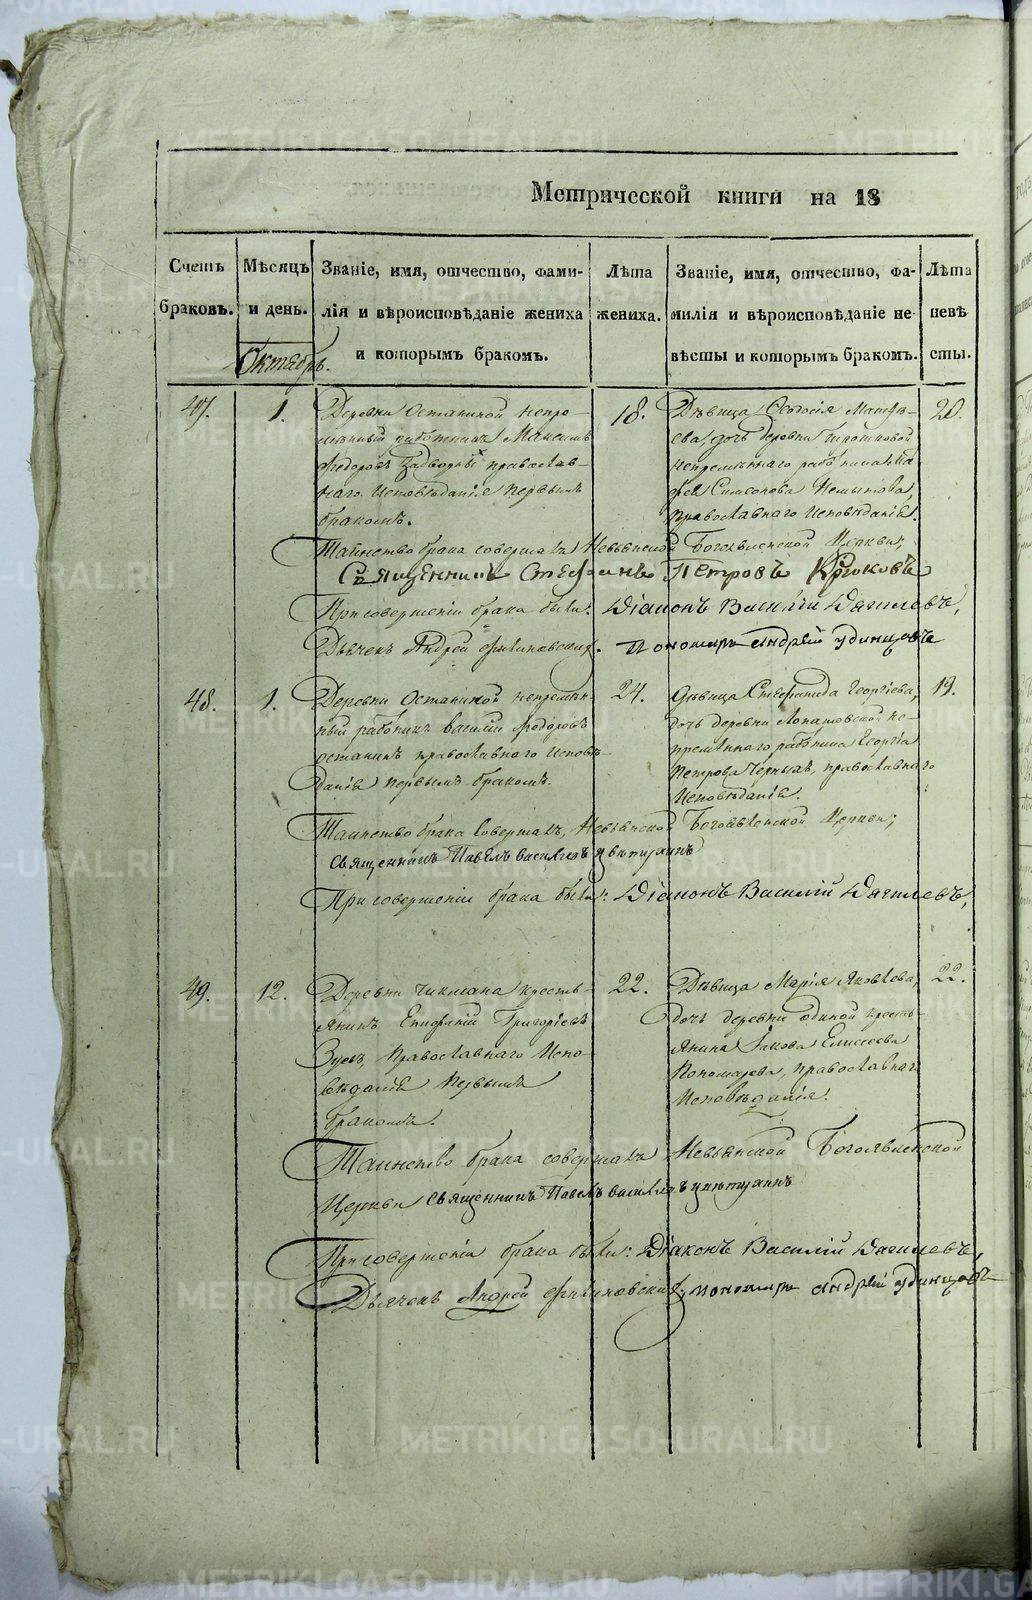 Метрической книги на 18
Счетъ браковъ.
Мѣсяцъ и день.
Званіе, имя, отчество, фами-
лія и вѣроисповѣданіе жениха
и которымъ бракомъ.
Лѣта жениха.
Званіе, имя, отчество, фа-
милія и вѣроисповѣданіе не-
вѣсты и которымъ бракомъ.
Лѣта невѣ
сты.
Октябрь.
47.
1.
Деревни Останиной непре-
мѣнный работникъ Максимъ
Федоровъ православ-
наго Исповѣданія первымъ
бракомъ.
18.
Дѣвица Ѳеодосія Матфѣ-
ева, дочь деревни
непремѣннаго работника Ма
фея Симеонова
православнаго Исповѣданія.
20.
Таинство брака совершалъ Невьянской Богоявленской Церкви,
Священникъ Стефанъ Петровъ Крюковъ
При совершеніи брака были: Діаконъ Василій Дягилевъ,
Дьячекъ Андрей Пономарь Андрей Удинцовъ
48.
1.
Деревни Останиной непремѣн-
ный работникъ Василій Федоровъ
Останинъ православнаго Исповѣ-
данія первымъ бракомъ.
24.
Дѣвица Стефанида Георгіева,
дочь деревни Лопатовской не-
премѣннаго работника Георгія
Петрова Черныхъ, православнаго
Исповѣданія.
19.
Таинство брака совершалъ, Невьянской Богоявленской Церкви,
Священникъ Павелъ Васильевъ
При совершеніи брака были: Діаконъ Василій Дягилевъ,
49.
12.
Деревни Чикмана кресть-
янинъ Епифаній Григорьевъ
Зуевъ, Православнаго Испо-
вѣданія Первымъ
бракомъ.
22.
Дѣвица Марія Яковлева,
дочь деревни Одиной кресть-
янина Іакова Елисеева
Пономарева, православнаго
Исповѣданія.
22.
Таинство брака совершалъ Невьянской Богоявленской
Церкви Священникъ Павелъ Васильевъ
При совершеніи брака были: Діаконъ Василій Дягилевъ,
Дьячекъ Андрей пономарь Андрей Удинцовъ
METRIKI.GASO-URAL.RU